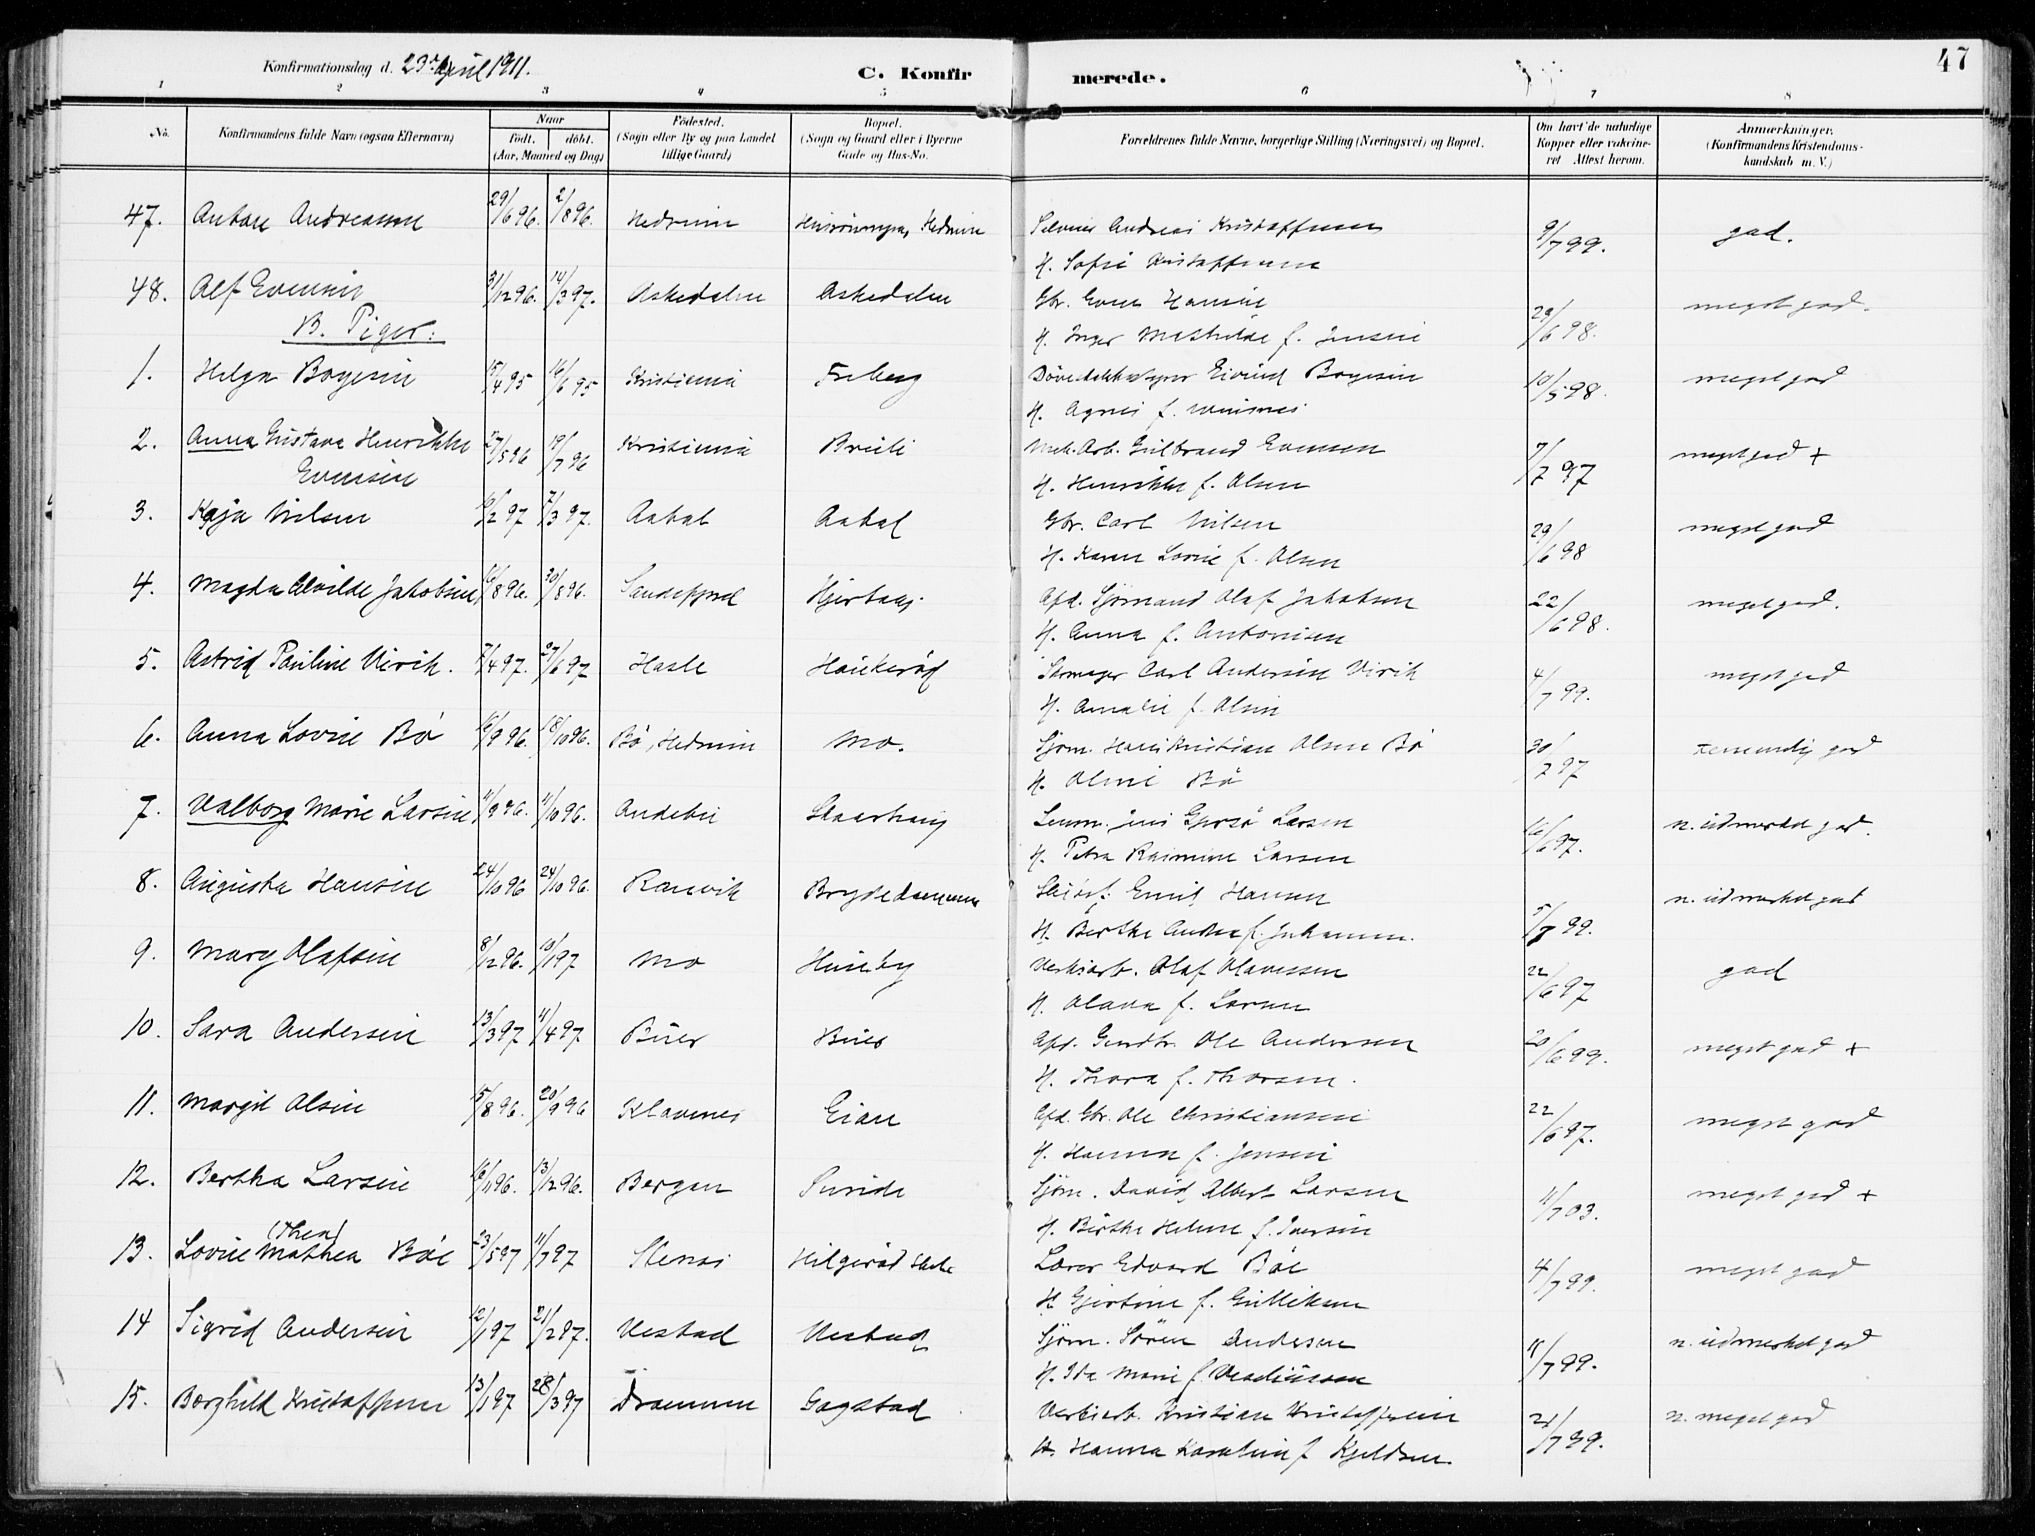 Konfirmationsdag d. 23de April 1911.
C. Konfirmerede.
47
1 2 3 4 5 6 7 8
No. Konfirmandens fulde Navn (ogsaa Efternavn) Naar født. døbt. (Aar, Maaned og Dag) Fødested. (Sogn eller By og paa Landet tillige Gaard) Bopæl. (Sogn og Gaard eller i Byerne Gade og Hus-No. Forældrenes fulde Navne, borgerlige Stilling (Næringsvei) og Bopæl. Om havt de naturlige Kopper eller vakcineret Attest herom. Anmærkninger. (Konfirmandens Kristendomskundskab m. V.)
47. Anton Andreassen 29/6 96. 2/8 96. Hedrum Hedrum Andreas Kristoffersen 9/7 99. god.
H. Sofie Kristoffersen
48. Alf Evensen 31/12 96. 14/3 97. Askedalen Askedalen Gbr. Even Hansen 29/6 98. meget god.
B. Piger:
H. Inger Mathilde f. Jensen
1. Helga Boyesen 15/4 95 16/6 95 Kristiania Freberg Eivind Boyesen 10/5 98. meget god
H. Agnes f.
2. Anna Gustava Henrikke 27/5 96 19/7 96 Kristiania Breili Mek. Arb. Gulbrand Evensen 7/7 97 meget god +
Evensen
H. Henrikke f. Olsen
3. Kaja Nilsen 6/2 97 7/3 97. Aabol Aabol Gbr. Carl Nilsen 29/6 98 meget god
H. Karen Lovise f. Olsen
4. Magda Alvilde Jakobsen 16/8 96. 30/8 96. Sandefjord Hjertaas. Afd. Sjømand Olaf Jakobsen 22/6 98. meget god.
H. Anna f. Antonisen
5. Astrid Pauline Virik. 7/4 97. 27/6 97 Hasle Haukerød Carl Andersen Virik 4/7 99. meget god
H. Amalie f. Olsen
6. Anna Lovise Bø 16/9 96. 18/10 96. Bø, Hedrum Mo. Sjøm. Hans Kristian Olsen Bø 30/7 97 temmelig god
H. Oline Bø
7. Valborg Marie Larsen 11/9 96. 11/10 96. Andebu Skaarhaug Jens Larsen 16/6 97. n. udmerket god.
H. Petra Rasmine Larsen
8. Augusta Hansen 24/10 96 24/10 96. Ranvik Brydedammen Emil Hansen 5/7 99. n. udmerket god
H. Berthe Andrea f. Johansen.
9. Mary Olafsen 8/12 96. 10/1 97 Mo Huseby Verksarb. Olaf Olavessen 22/6 97 god
H. Olava f. Larsen
10. Sara Andersen 13/3 97 11/4 97 Buer Buer Afd. Gaardbr. Ole Andersen 20/6 99. meget god +
H. Thora f. Thorsen.
11. Margit Olsen 15/8 96. 20/9 96 Klavenes Eian Afd. Gbr. Ole Christiansen 22/6 97. meget god
H. Hanna f. Jensen
12. Bertha Larsen 16/11 96. 13/12 96. Bergan Sunde Sjøm. David Albert Larsen 11/7 03. meget god +
H. Berthe Helene f. Iversen
(Thea)
13. Lovise Mathea Bøe 23/5 97 11/7 97 Stenas Helgerød Lærer Edvard Bøe 4/7 99. meget god
H. Gjertine f. Gulliksen
14 Sigrid Andersen 12/1 97 21/2 97. Vestad Vestad Sjøm. Søren Andersen 11/7 99. n. udmerket god
H. Ida Marie f.
15. Borghild Kristoffersen 13/1 97 28/3 97 Drammen Gogstad Verksarb. Kristian Kristoffersen 21/7 99. n. meget god
H. Hanna Karoline f. Kjeldsen.